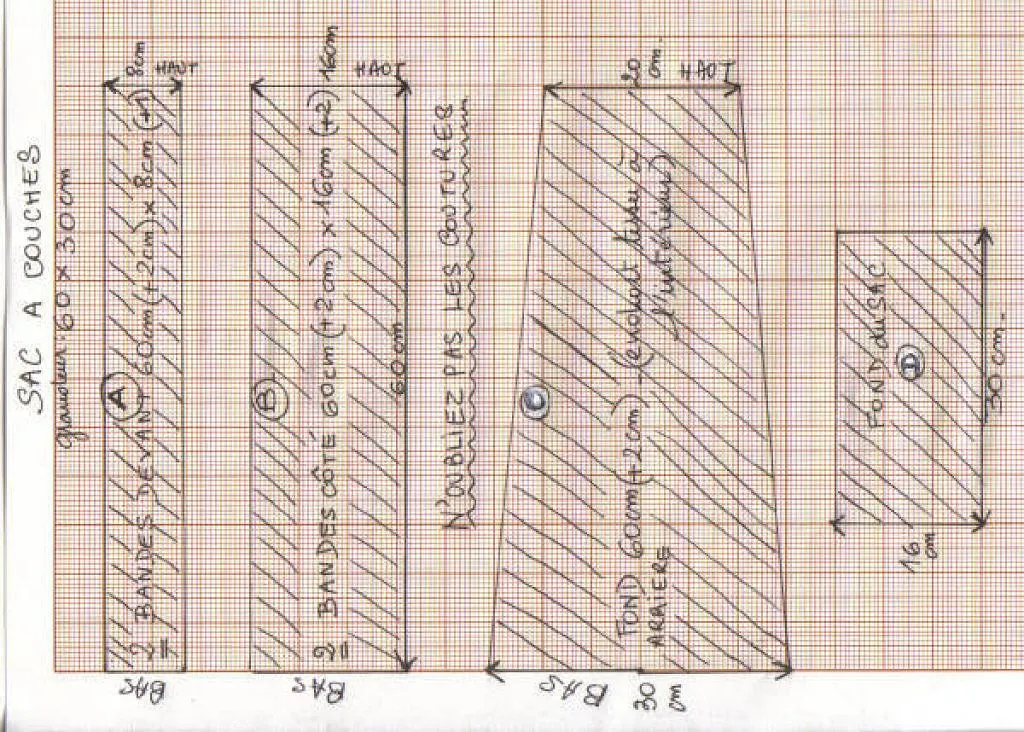 SAC A COUCHES
grandeur: 60 x 30cm
8cm
HAUT
A
2 BANDES DEVANT 60cm(+2cm) x 8cm (+1)
BAS
HAUT
B
2 BANDES CÔTÉ 60cm(+2cm) x 16cm (+2) 16cm
60cm
BAS
N'OUBLIEZ PAS LES COUTURES
20
cm.
HAUT
C
FOND 60cm(+2cm) - (endroit tissu à
l'intérieur)
ARRIERE
BAS
30
cm
FOND du SAC
D
16
cm
30cm.